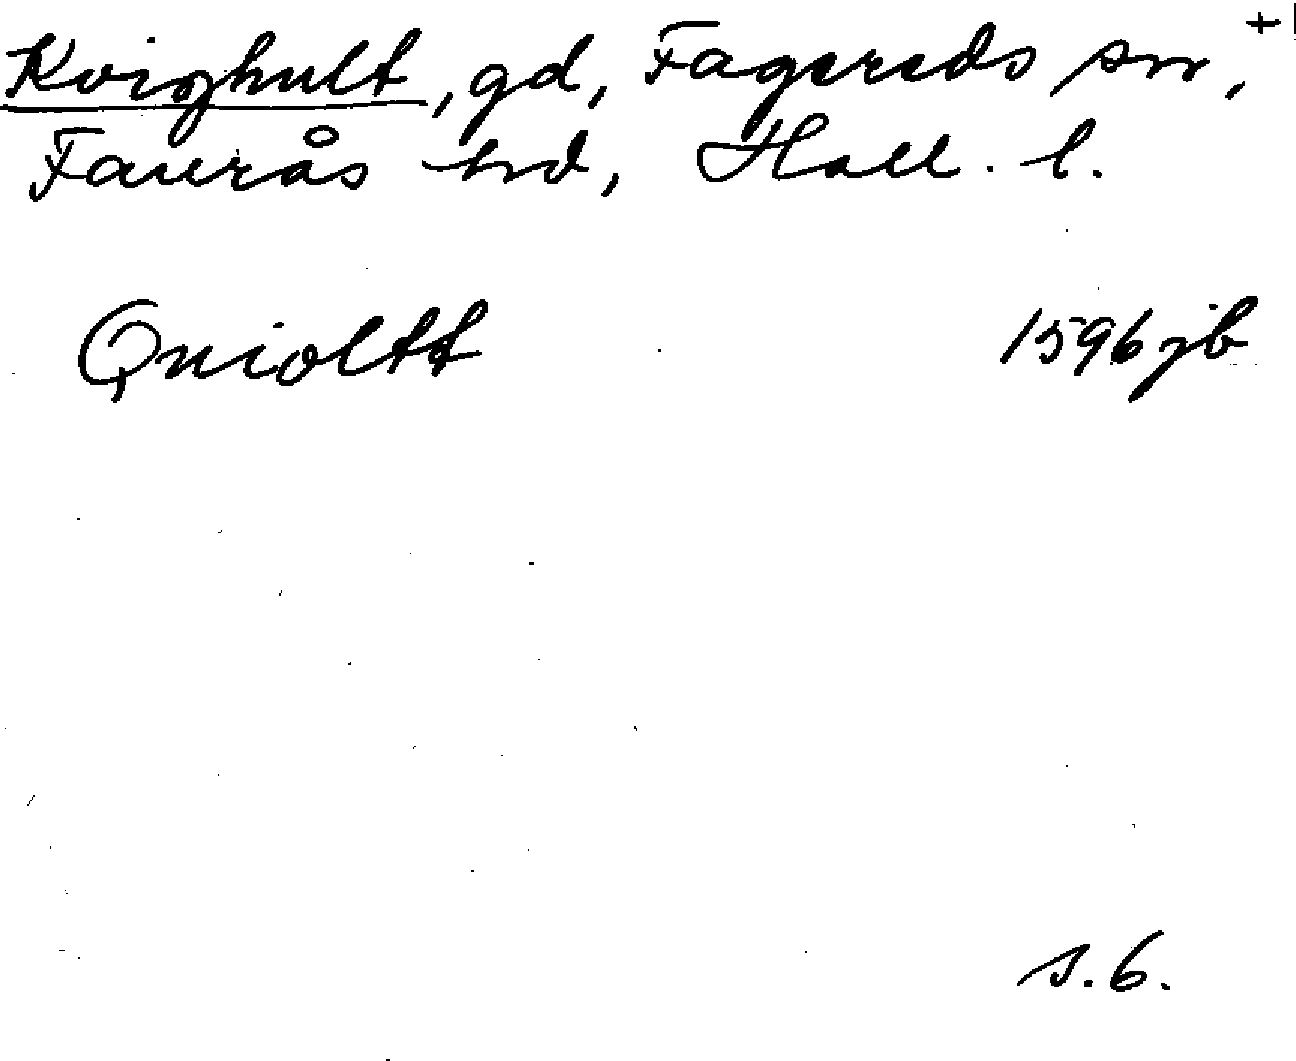 +
Kvighult, gd, Fagereds sn,
Faurås hd, Hall. l.
Quioltt 1596 jb
s. 6.